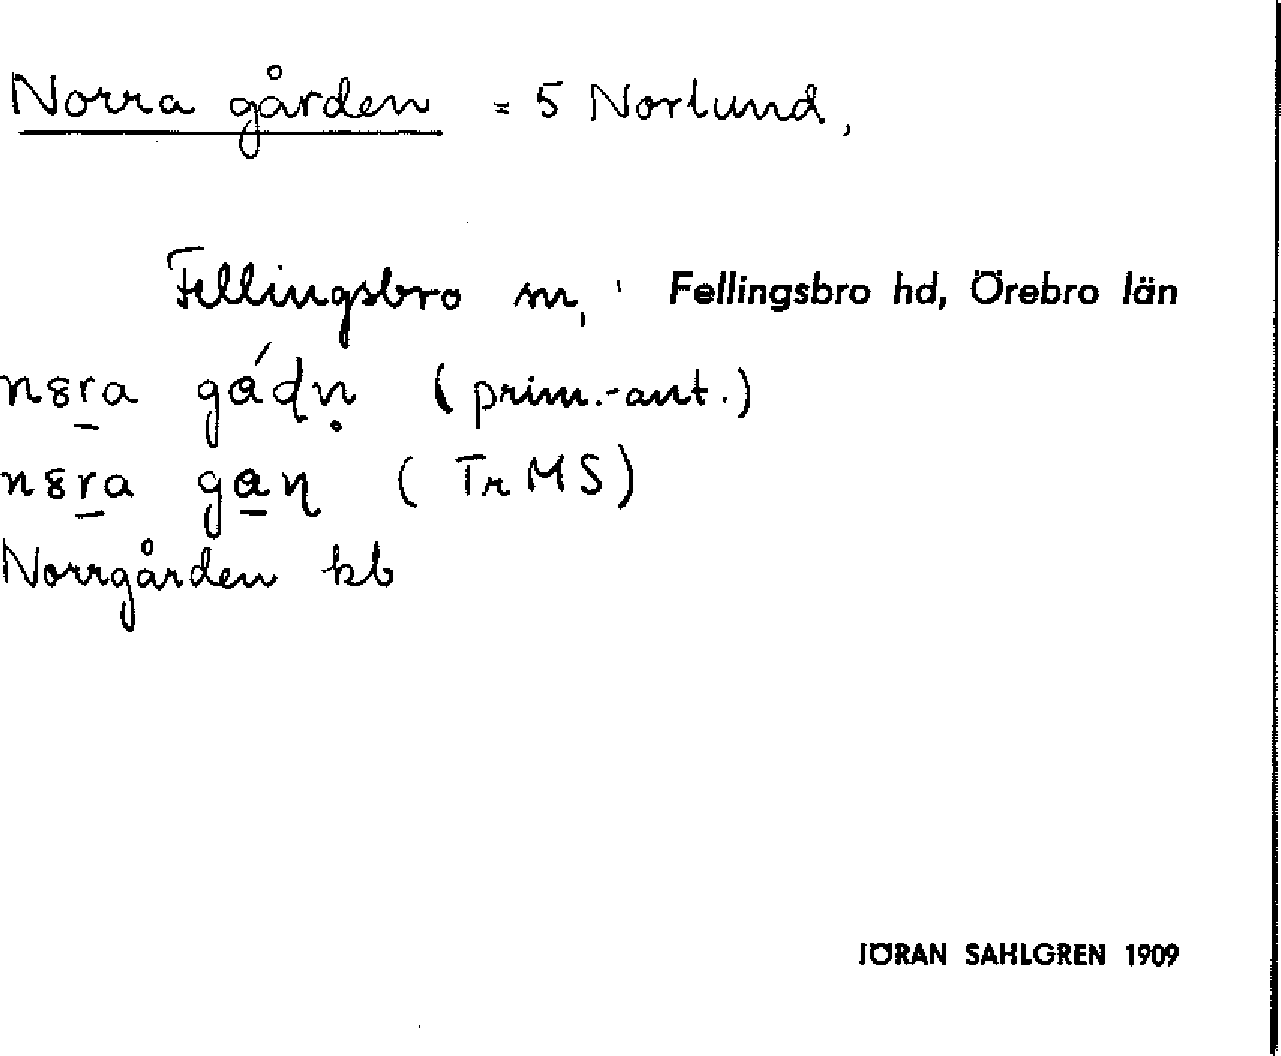 Norra gården = 5 Norlund,
Fellingsbro sn, Fellingsbro hd, Örebro län
(prim.-ant.)
(TrMS)
Norrgården kb
JÖRAN SAHLGREN 1909